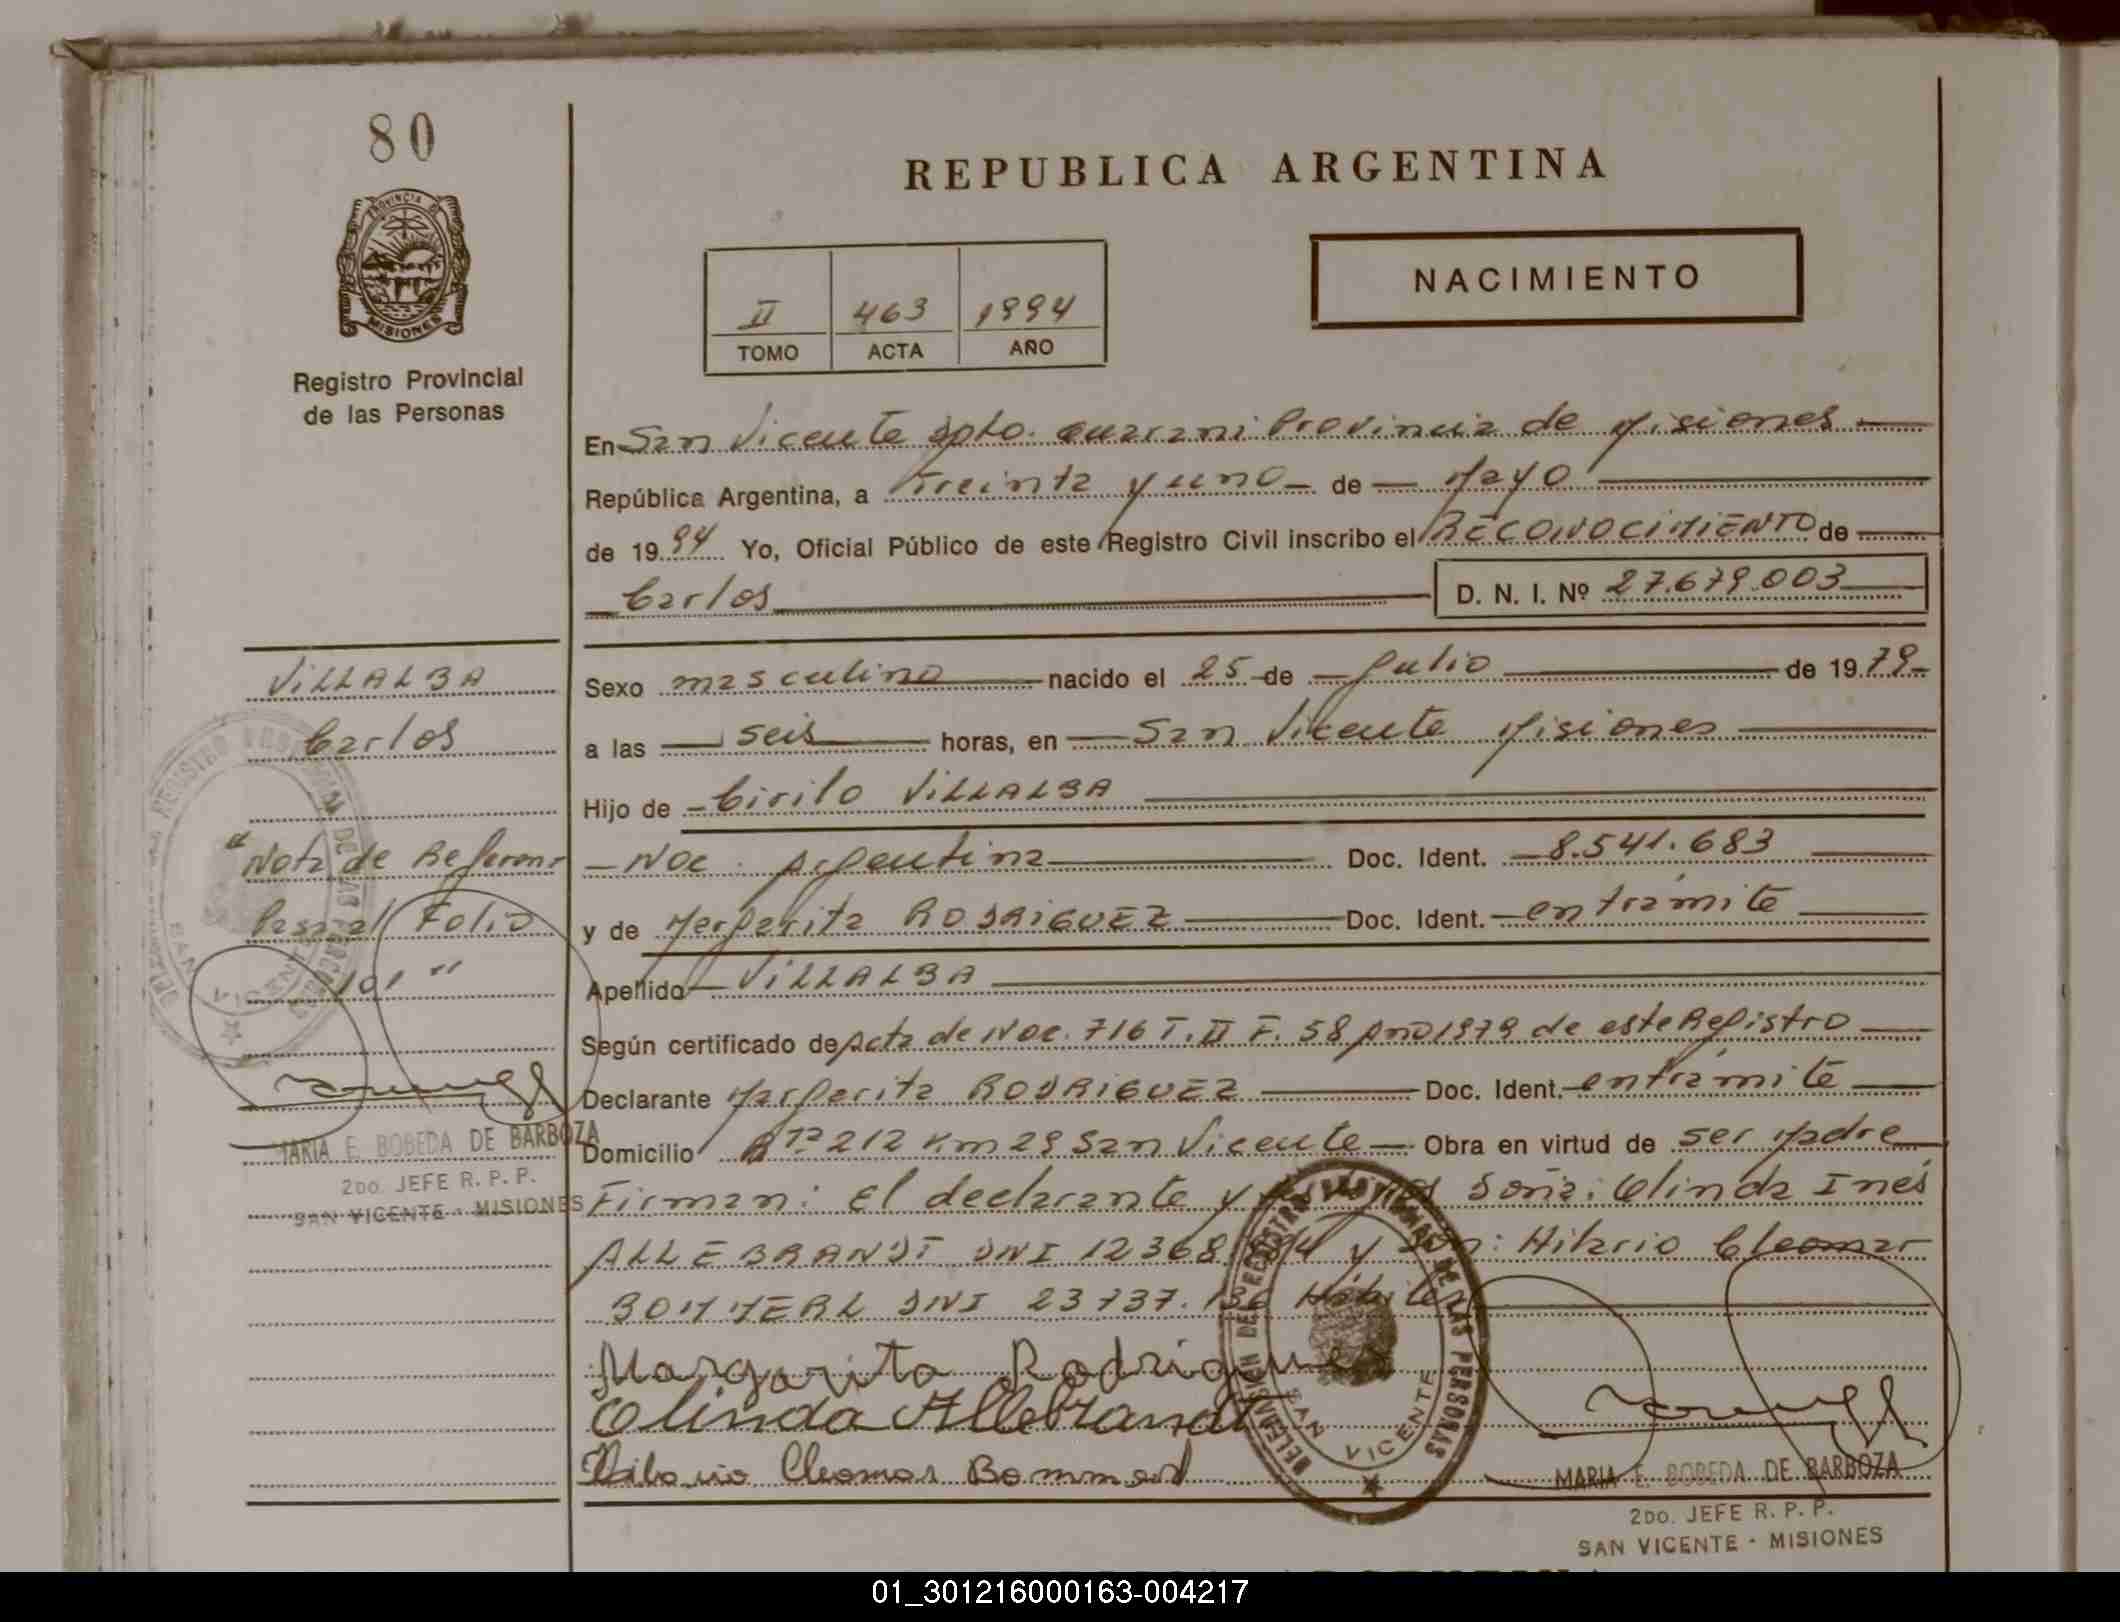 80
PROVINCIA DE
MISIONES
Registro Provincial
de las Personas
REPUBLICA ARGENTINA
NACIMIENTO
II 463 1994
TOMO ACTA AÑO
En San Vicente Dpto. Guarani Provincia de Misiones
República Argentina, a treinta y uno de Mayo
de 1994 Yo, Oficial Público de este Registro Civil inscribo el RECONOCIMIENTO de
Carlos D. N. I. Nº 27.679.003
Sexo masculino nacido el 25 de Julio de 1979
a las seis horas, en San Vicente Misiones
Hijo de Cirilo ViLLALBA
Nac. Argentina Doc. Ident. 8.541.683
y de Margarita RODRiGUEZ Doc. Ident. en trámite
Apellido ViLLALBA
Según certificado de Acta de Nac. 716 T. II F. 58 Año 1979 de este Registro
Declarante Margarita RODRIGUEZ Doc. Ident. en trámite
Domicilio Rta 212 Km 29 San Vicente Obra en virtud de ser Madre
Firman: El declarante y Doña: Olinda Inés
ALLEBRANDT DNI 12368 y Don: Hilario Cleomar
BOMMERL DNI 23737.136 Hábiles
Margarita Rodriguez
Olinda Allebrandt
Hilario Cleomar
ViLLALBA
Carlos
"Nota de Referen
Pasa al Folio
101"
MARIA E. BOBEDA DE BARBOZA
2DO. JEFE R. P. P.
SAN VICENTE - MISIONES
DELEGACION DE REGISTRO PROVINCIAL DE LAS PERSONAS
SAN VICENTE
MARIA E. BOBEDA DE BARBOZA
2DO. JEFE R. P. P.
SAN VICENTE - MISIONES
01_301216000163-004217